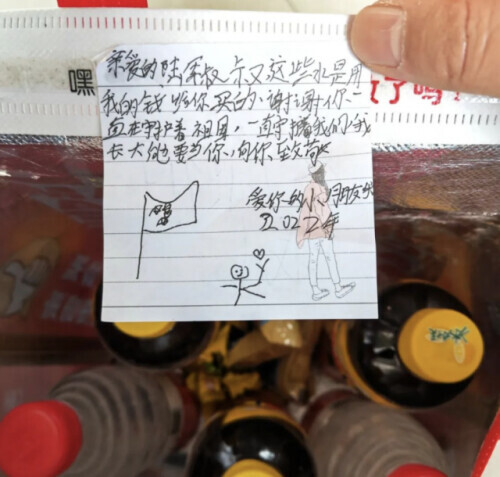 亲爱的陆军叔叔这些水是用
嘿
我的钱给你买的、谢谢你一
了吗?
直在守护着祖国,一直守护着我们、我
长大也要当你,向你致敬
爱你的小朋友
2022年